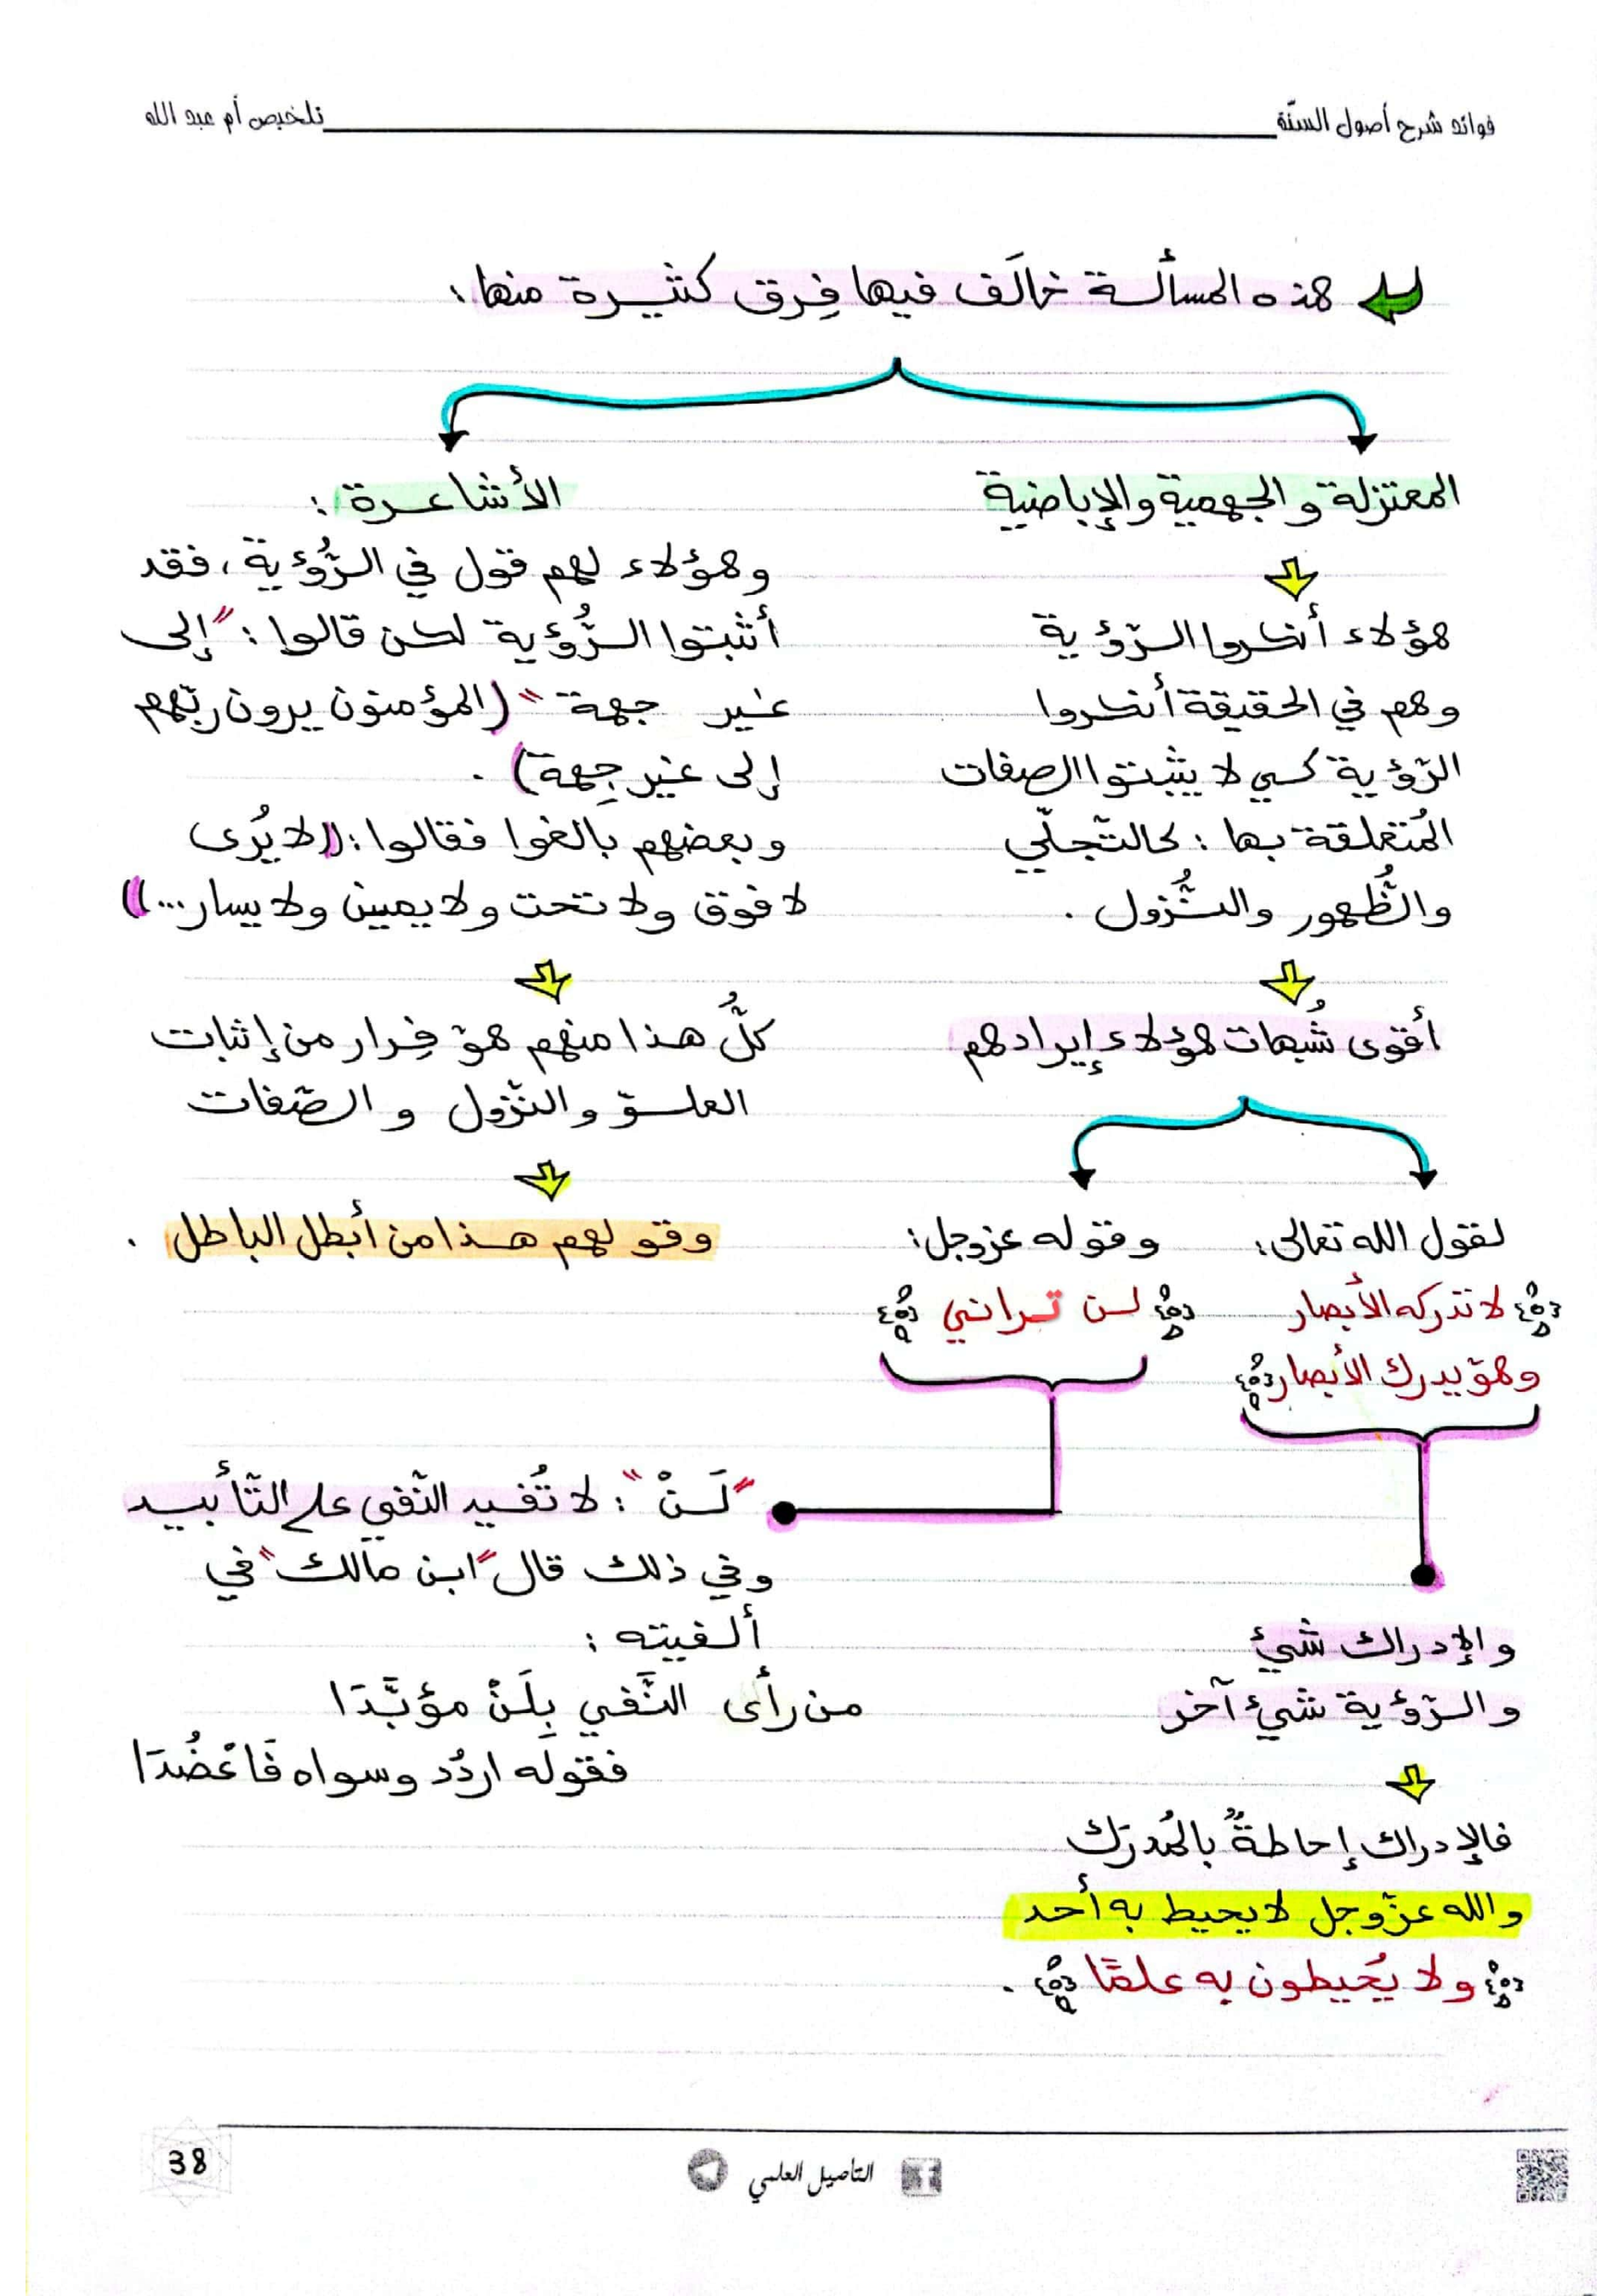 فوائد شرح أصول السنّة
تلخيص أم عبد الله
هذه المسألة خالَف فيها فِرق كثيرة منها:
المعتزلة والجهمية والإباضية
هؤلاء أنكروا الرّؤية
وهم في الحقيقة أنكروا
الرّؤية كي لا يثبتوا الصفات
المُتعلقة بها: كالتّجلّي
والظُّهور والنُّزول.
أقوى شُبهات هؤلاء إيرادهم
لقول الله تعالى:
لا تدركه الأبصار
وهو يدرك الأبصار
والإدراك شيئ
والرّؤية شيئ آخر
فالإدراك إحاطةٌ بالمُدرَك
والله عزّ وجل لا يحيط به أحد
ولا يُحيطون به علمًا.
وقوله عز وجل:
لن تراني
"لَنْ": لا تُفيد النّفي على التّأبيد
وفي ذلك قال "ابن مالك" في
ألفيته:
من رأى النَّفي بِلَنْ مؤبَّدَا
فقوله اردُد وسواه فَاعْضُدَا
الأشاعرة:
وهؤلاء لهم قول في الرُّؤية، فقد
أثبتوا الرُّؤية لكن قالوا: "إلى
غير جهة" (المؤمنون يرون ربّهم
إلى غير جِهة).
وبعضهم بالغوا فقالوا: ((لا يُرى
لا فوق ولا تحت ولا يمين ولا يسار...))
كلُّ هذا منهم هو فِرار من إثبات
العلوّ والنّزول والصّفات
وقولهم هذا من أبطل الباطل.
التأصيل العلمي
38